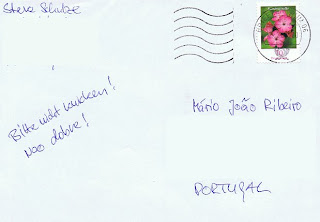 Steve Schulze
Bitte nicht knicken!
Nao dobre!
Mário João Ribeiro
PORTUGAL